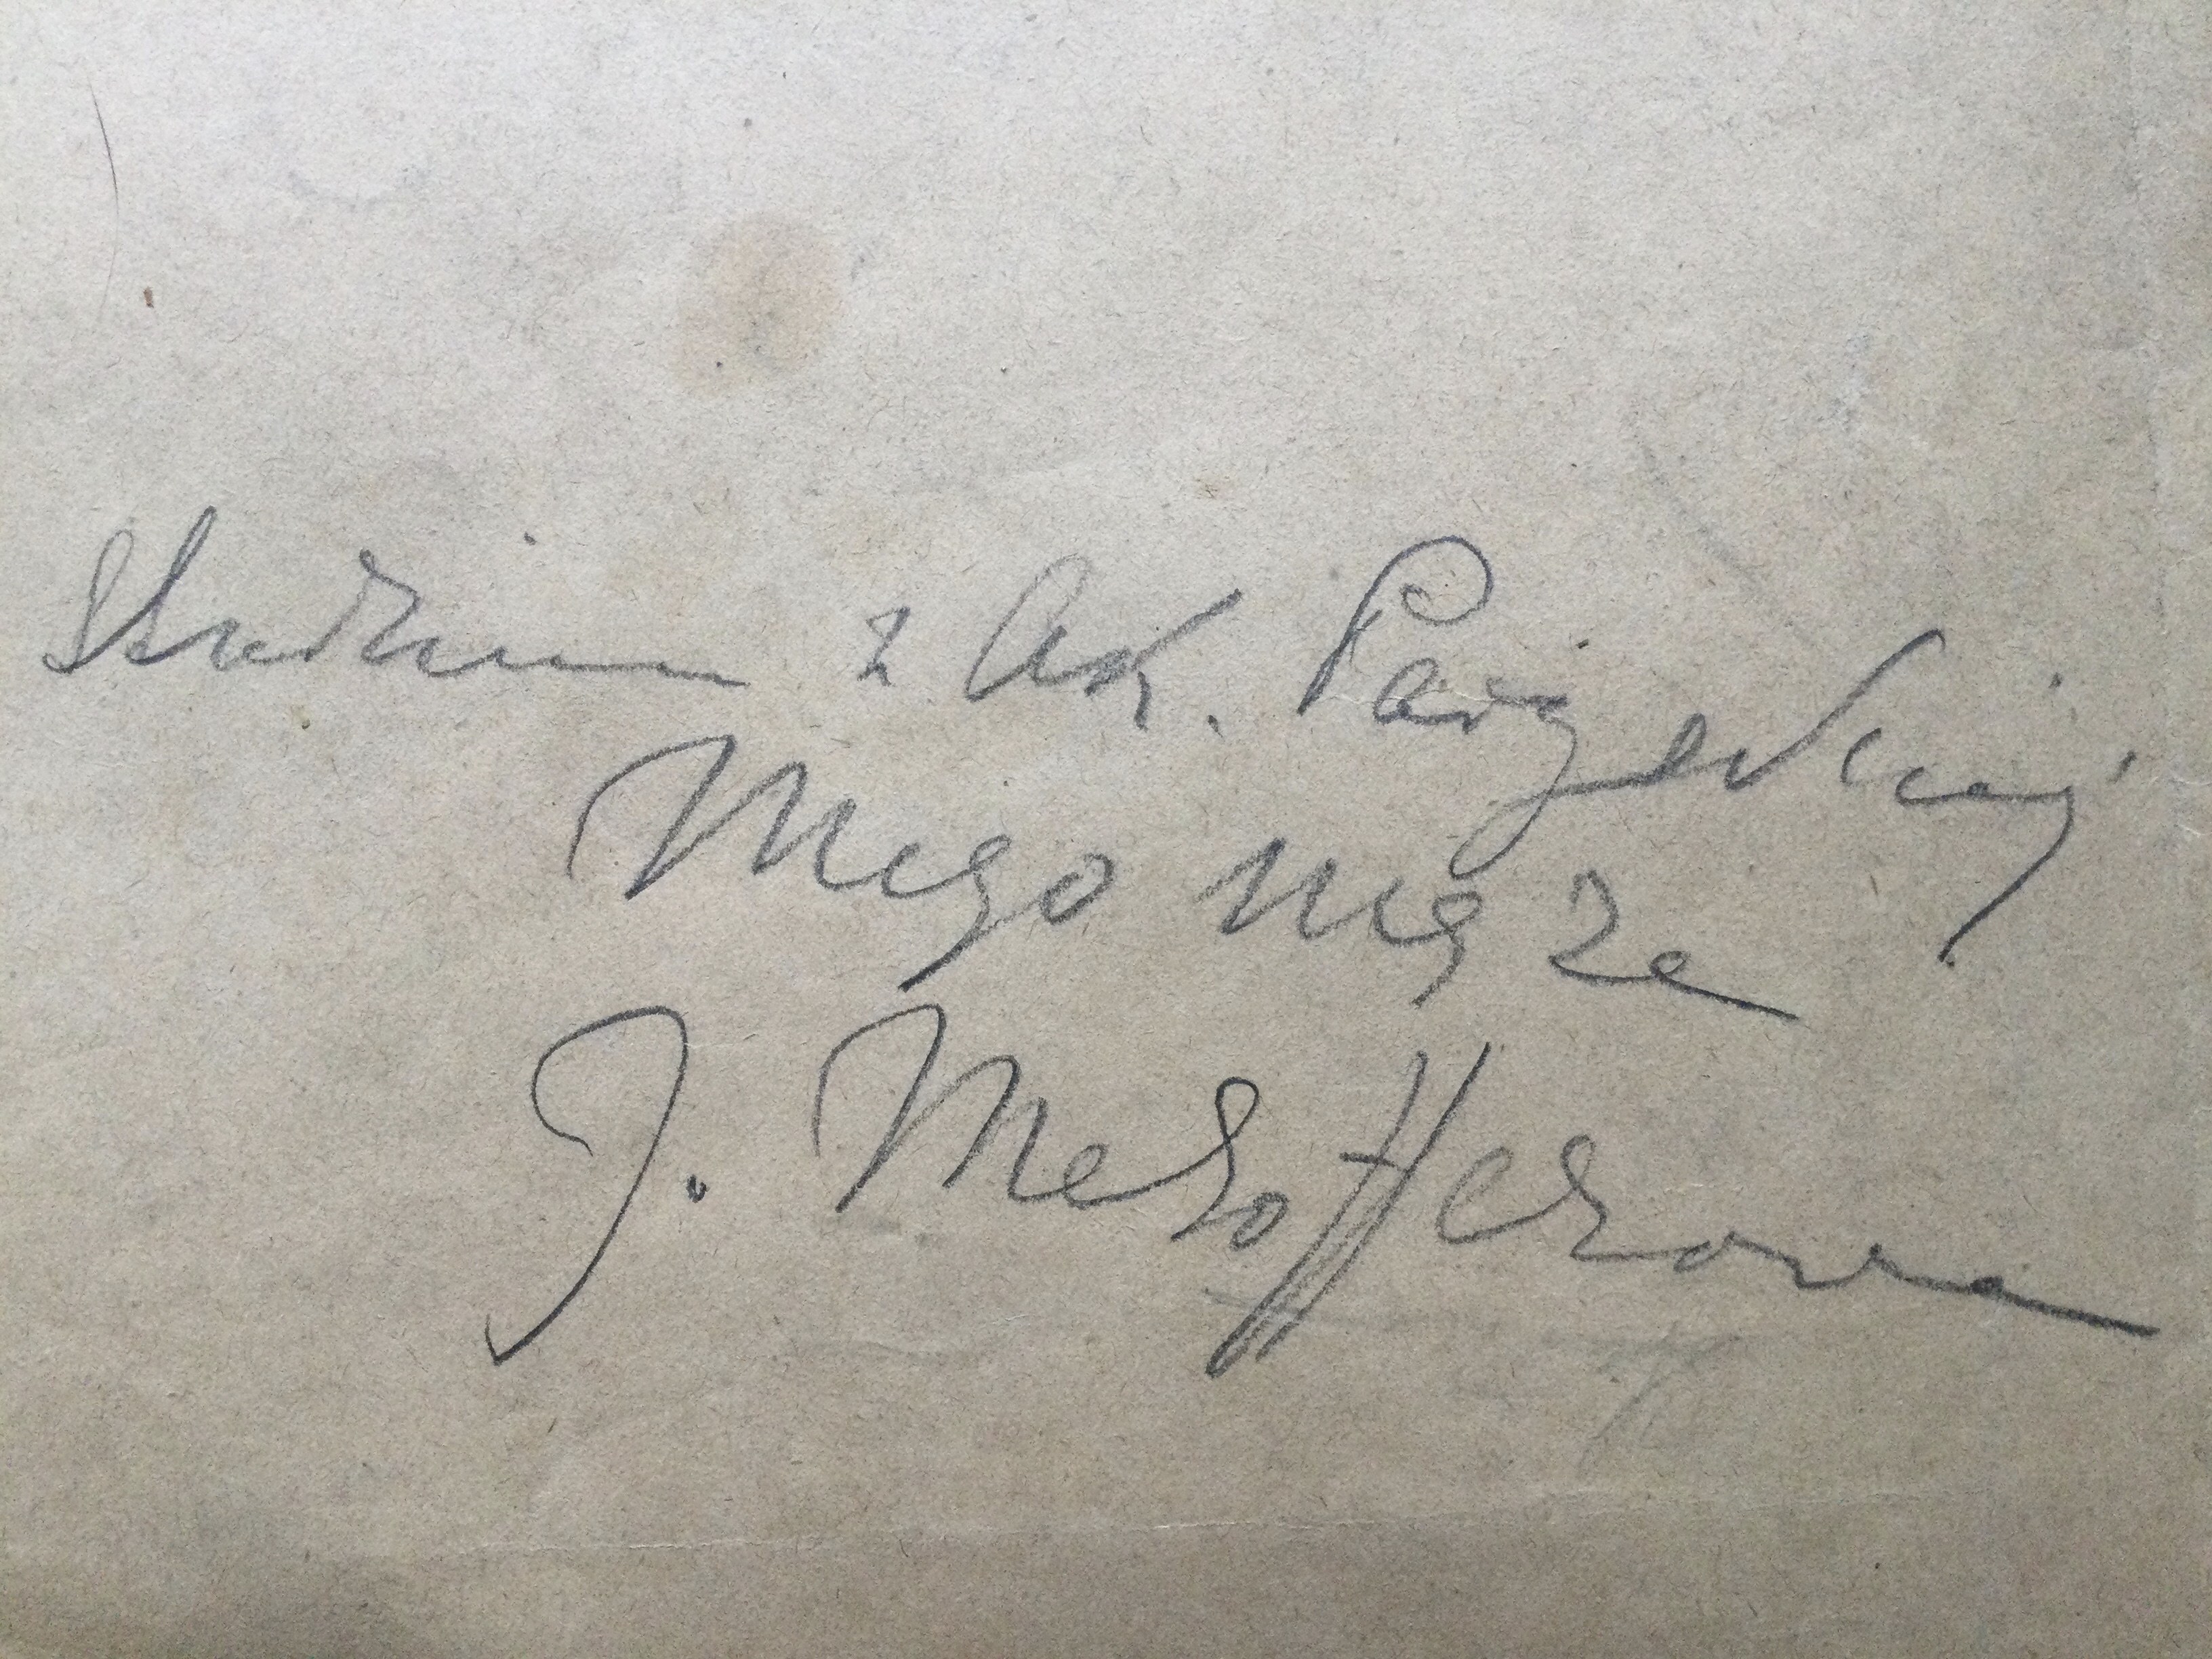 Studium z Ak. Paryskiej
Mego męża
J. Mehofferowa